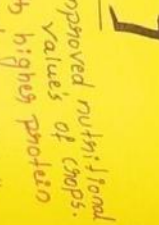 mproved nutritional
values of crops.
higher protein